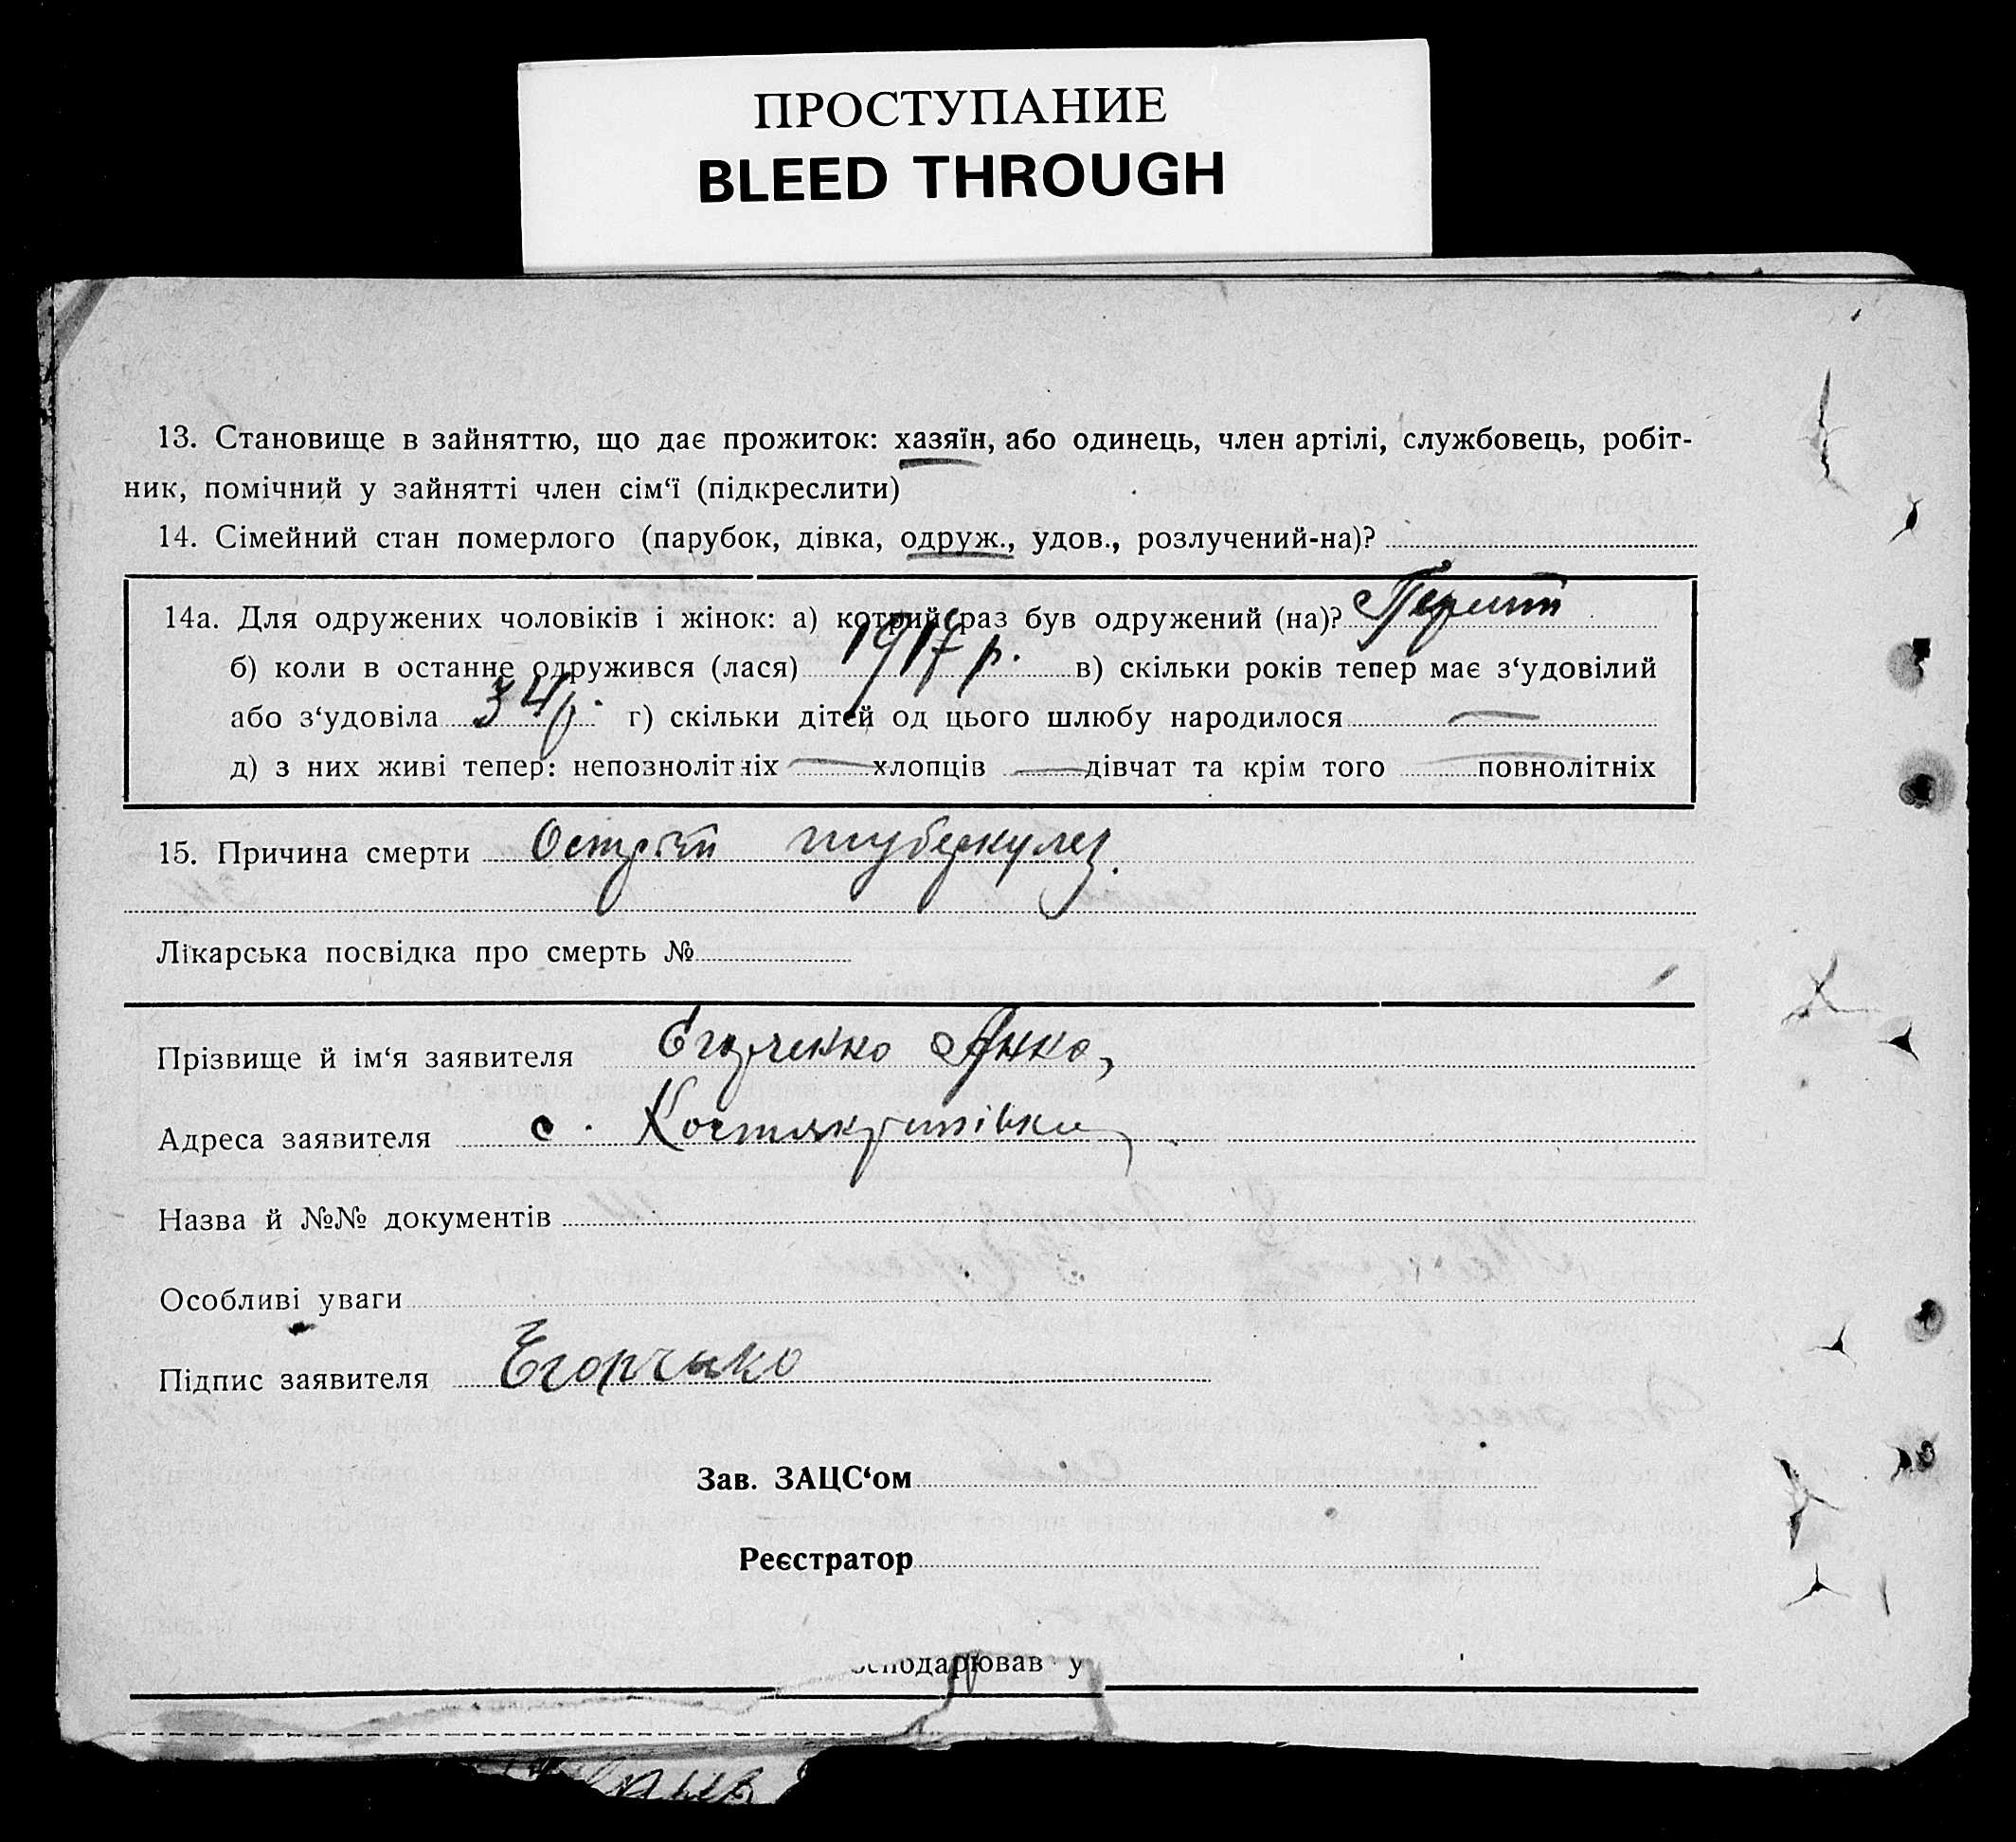 ПРОСТУПАНИЕ
BLEED THROUGH
13. Становище в зайняттю, що дає прожиток: хазяїн, або одинець, член артілі, службовець, робіт-
ник, помічний у зайнятті член сім‘ї (підкреслити)
14. Сімейний стан померлого (парубок, дівка, одруж., удов., розлучений-на)?
14а. Для одружених чоловіків і жінок: а) котрий раз був одружений (на)?
б) коли в останнє одружився (лася) 1917 р. в) скільки років тепер має з‘удовілий
або з‘удовіла 34 р. г) скільки дітей од цього шлюбу народилося —
д) з них живі тепер: непознолітніх — хлопців — дівчат та крім того — повнолітніх
15. Причина смерти Острий туберкулез.
Лікарська посвідка про смерть №
Прізвище й ім‘я заявителя Егорченко
Адреса заявителя с.
Назва й №№ документів
Особливі уваги
Підпис заявителя Егорченко
Зав. ЗАЦС‘ом
Реєстратор
сподарював у